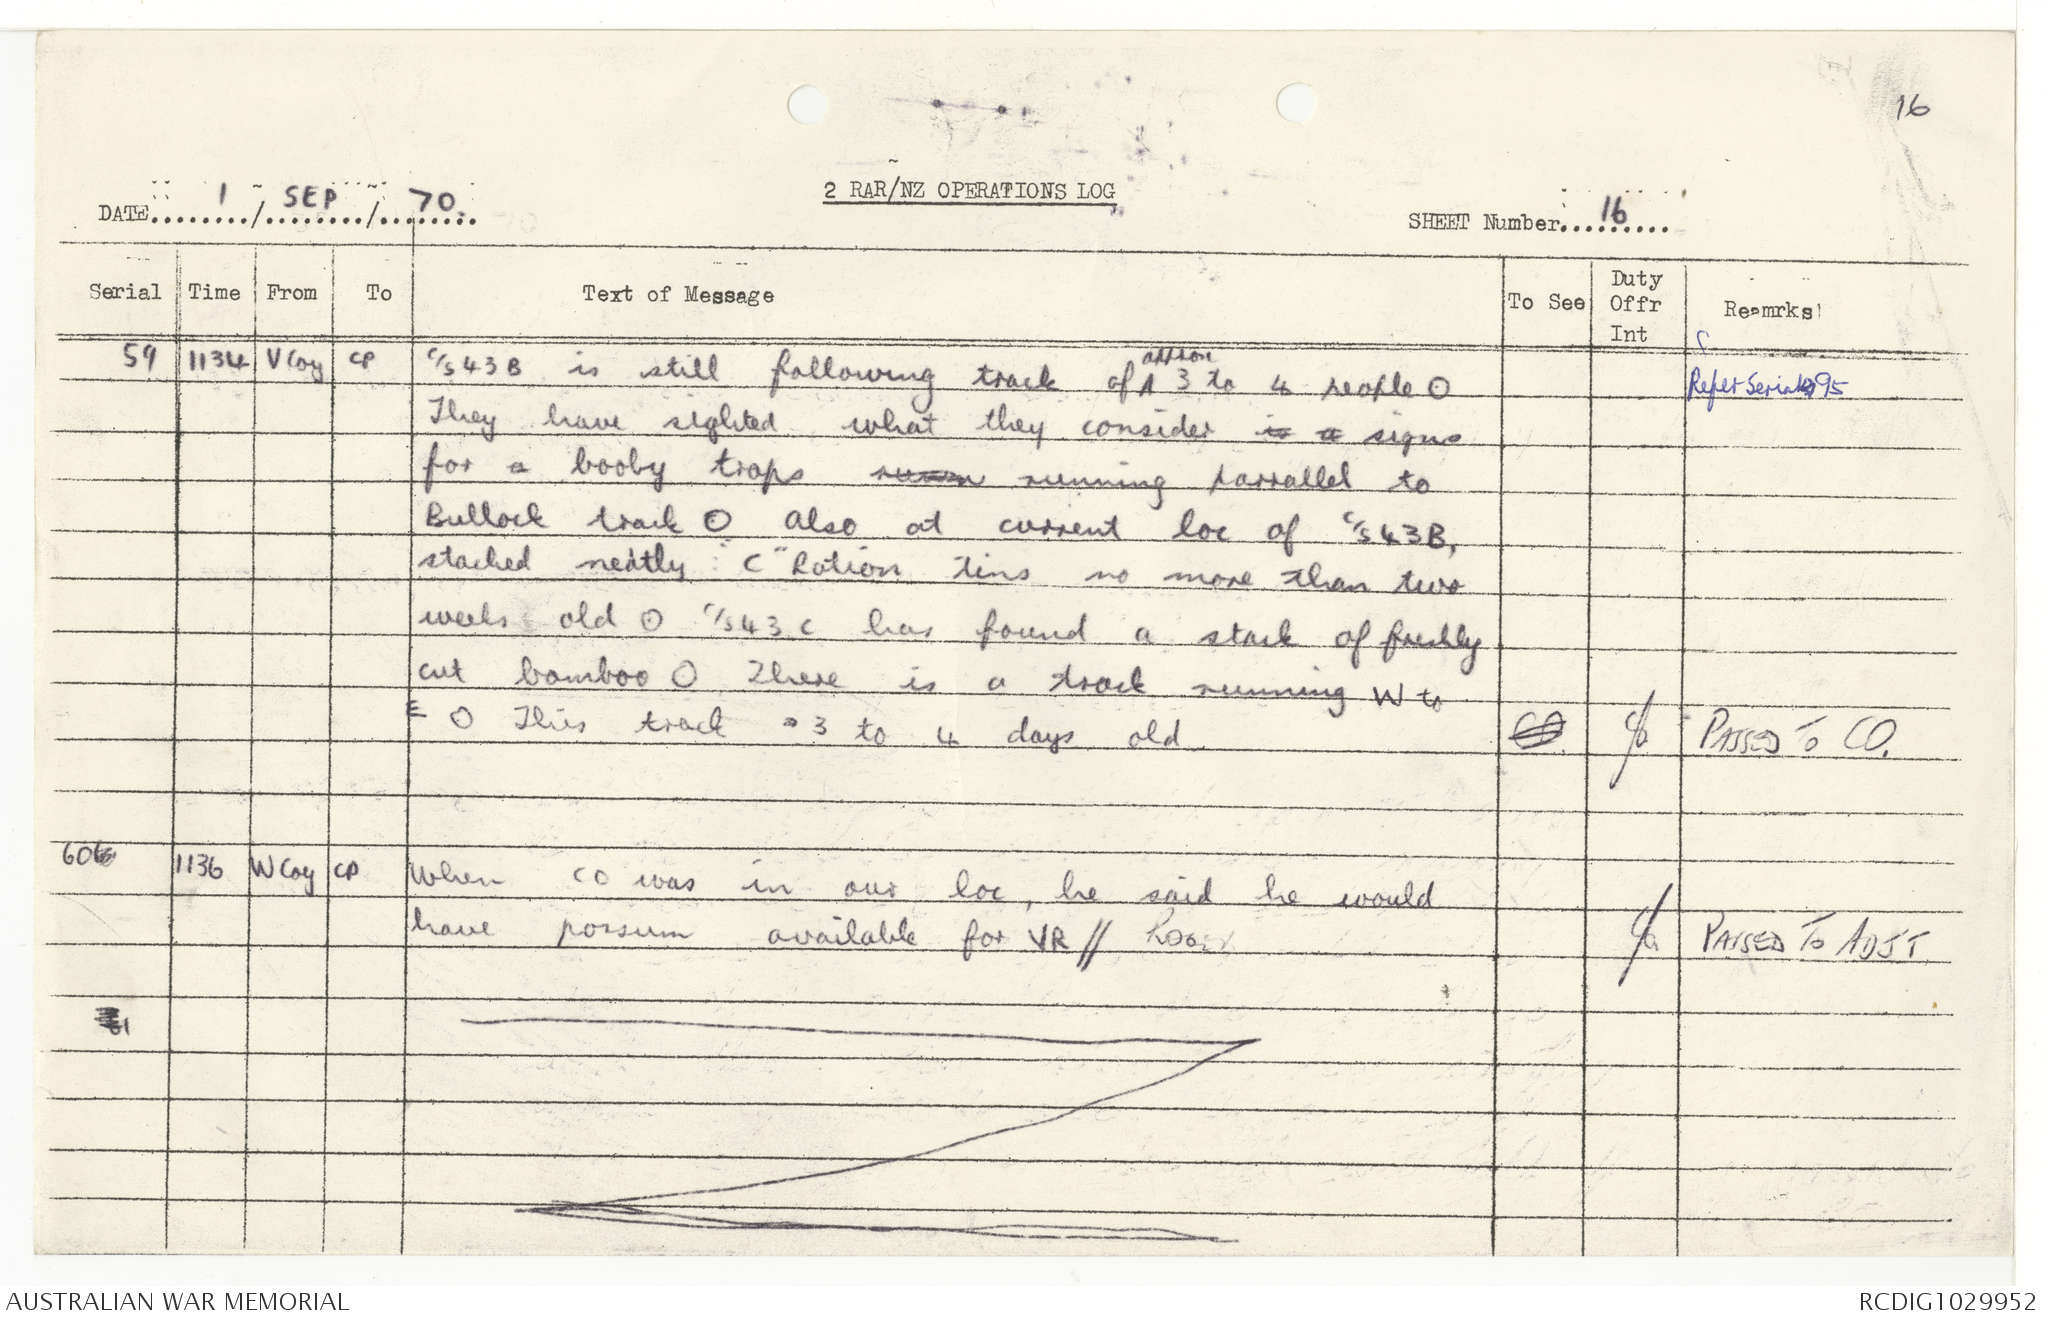 16
2 RAR/NZ OPERATIONS LOG
DATE 1 / SEP / 70.
SHEET Number 16
Serial Time From To Text of Message To See Duty Offr Int Remrks
59 1134 V Coy CP C/S 43B is still following track of approx 3 to 4 people O
Refer Serial 95
They have sighted what they consider is a signs
for a booby traps running parrallel to
Bullock track O Also at current loc of C/S 43B,
stacked neatly "C" Ration tins no more than two
weeks old O C/S 43C has found a stack of freshly
cut bamboo O There is a track running W to
E O This track 3 to 4 days old PASSED TO CO.
60 1136 W Coy CP When CO was in our loc, he said he would
have possum available for VR // PASSED TO ADJT
61
AUSTRALIAN WAR MEMORIAL
RCDIG1029952